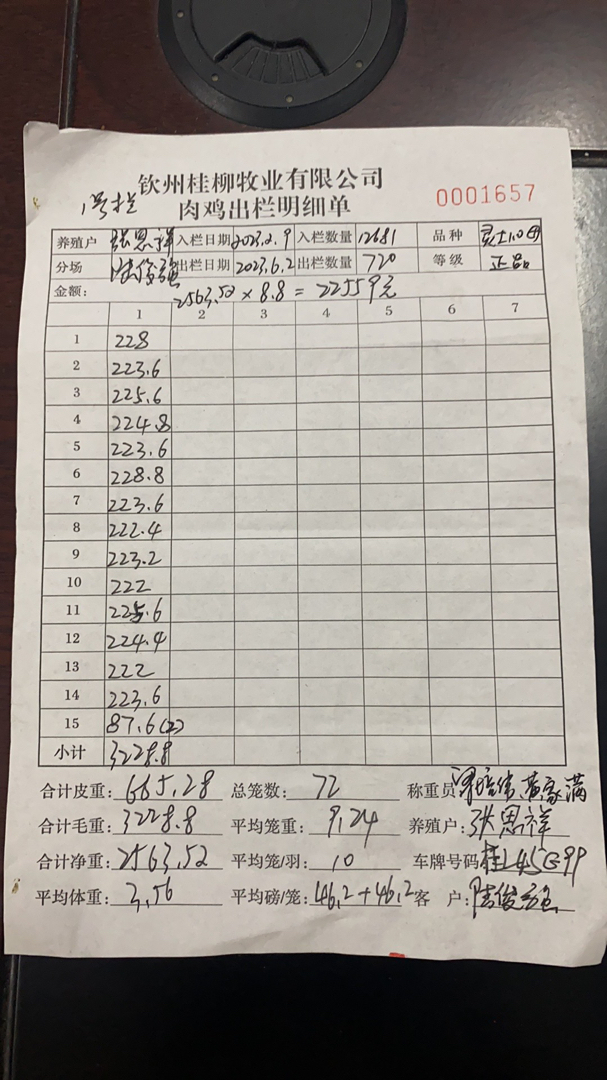 钦州桂柳牧业有限公司
1号栏 肉鸡出栏明细单 0001657
养殖户 张恩祥 入栏日期 2023.2.9 入栏数量 12681 品种
分场 出栏日期 2023.6.2 出栏数量 720 等级 正品
金额: 2563.52 × 8.8 = 22559元
1 2 3 4 5 6 7
1 228
2 223.6
3 225.6
4 224.8
5 223.6
6 228.8
7 223.6
8 222.4
9 223.2
10 222
11 225.6
12 224.4
13 222
14 223.6
15 87.6(2)
小计 3228.8
合计皮重: 665.28 总笼数: 72 称重员 黄家满
合计毛重: 3228.8 平均笼重: 9.24 养殖户: 张恩祥
合计净重: 2563.52 平均笼/羽: 10 车牌号码
平均体重: 3.56 平均磅/笼: 46.2+46.2 客 户: